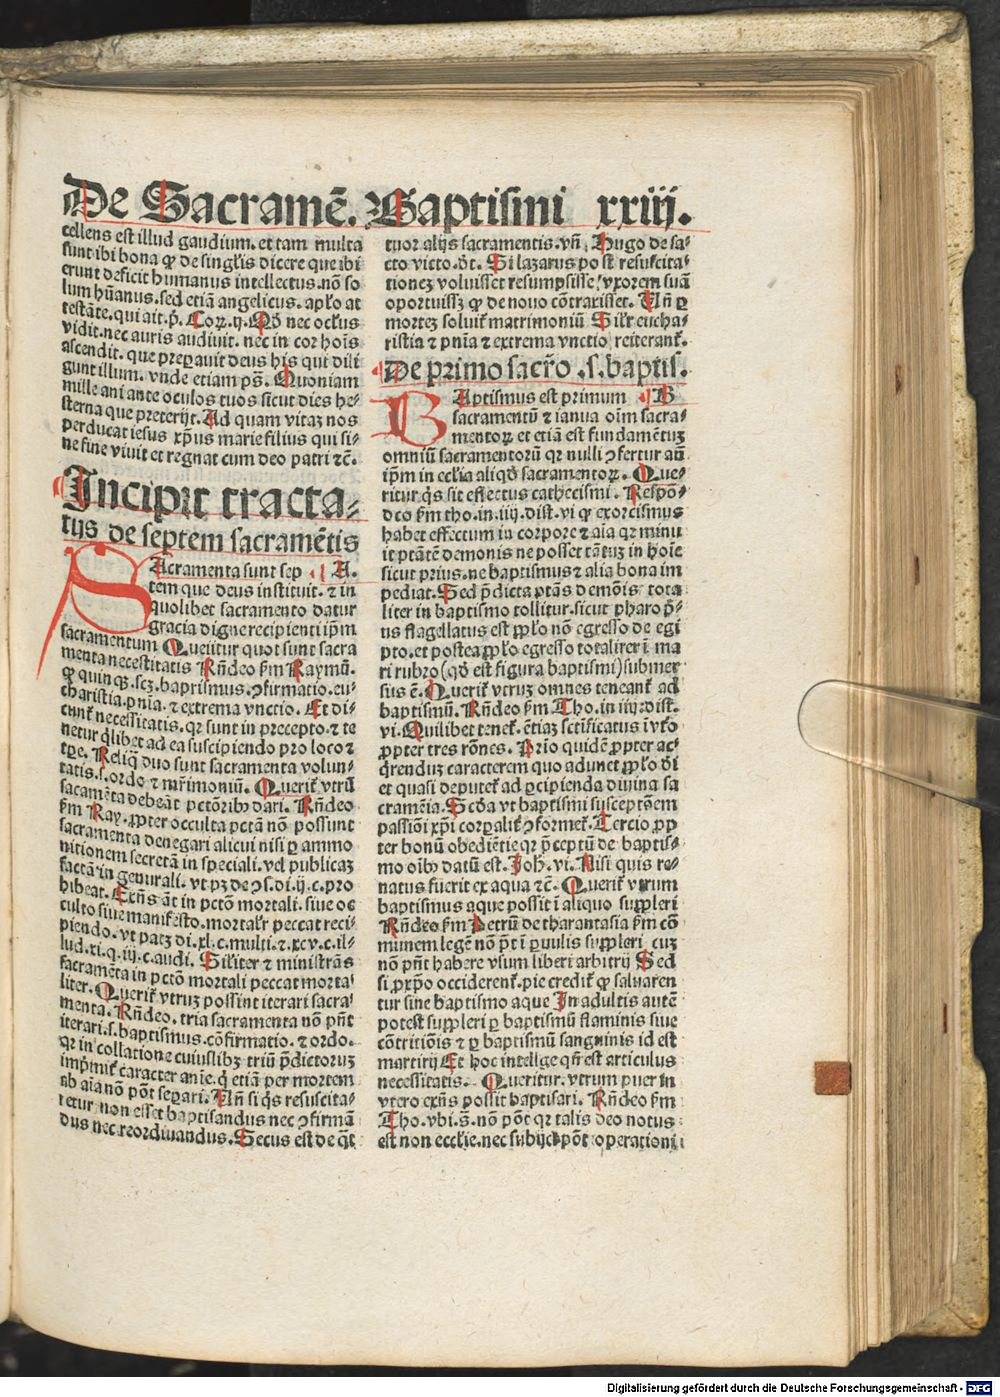 De Sacramē. Baptismi xxiij.
cellens est illud gaudium. et tam multa
sunt ibi bona ꝙ de singl'is dicere que ibi
erunt deficit humanus intellectus. nō so
lum hūanus. sed etiā angelicus. apl'o at
testāte. qui ait. p̄. Coꝝ. ij. Qd̄ nec ocl'us
vidit. nec auris audiuit. nec in cor hoīs
ascendit. que preꝑauit deus his qui dili
gunt illum. vnde etiam pṡ. Quoniam
mille ani ante oculos tuos sicut dies he-
sterna que preterijt. Ad quam vitaꝫ nos
perducat iesus xp̄us marie filius qui si-
ne fine viuit et regnat cum deo patri ⁊c̄.
Incipit tracta-
tus de septem sacramētis
SAcramenta sunt sep A.
tem que deus instituit. ⁊ in
quolibet sacramento datur
gracia digne recipienti ip̄m
sacramentum Queritur quot sunt sacra
menta necestitatis Rn̄deo ẜm Raymū.
ꝙ quinqꝫ. scꝫ. baptismus. ꝯfirmatio. eu-
charistia. pn̄ia. ⁊ extrema vnctio. Et di-
cunt' necessitatis. qr sunt in precepto. ⁊ te
netur q̇libet ad ea suscipiendo pro loco ⁊
tꝑe. Reliq̄ duo sunt sacramenta volun-
tatis. s. ordo ⁊ mr̄imoniū. Querit' vtrū
sacamēta debeāt pctōribꝫ dari. Rn̄deo
ẜm Ray. ꝓpter occulta pctā nō possunt
sacramenta denegari alicui nisi ꝑ ammo
nitionem secretā in speciali. vel publicaꝫ
factā in generali. vt pꝫ de ꝯs. di. ij. c. pro
hibeat. Exn̄s āt in pctō mortali. siue oc
culto siue manifesto. mortal'r peccat reci-
piendo. vt patꝫ di. xl. c. multi. ⁊. xcv. c. il-
lud. xi. q. iij. c. audi. Sil'iter ⁊ ministrās
sacramēta in pctō mortali peccat morta'
liter. Querit' vtruꝫ possint iterari sacra'
menta. Rn̄deo. tria sacramenta nō pn̄t
iterari. s. baptismus. cōfirmatio. ⁊ ordo.
qr in collatione cuiuslibꝫ triū p̄dictoruꝫ
imp̄mit' caracter anīe. q̇ etiā per mortem
ab aīa nō pōt seꝑari. Vn̄ si q̇s resuscita-
retur non esset baptisandus nec ꝯfirmā
dus nec reordinandus. Secus est de q̄t
tuor alijs sacramentis. vn̄ Hugo de sa'
cto victo. dt̄. Si lazarus post resuscita'
tioneꝫ voluisset resumpsisse vxorem suā
oportuissꝫ ꝙ de nouo cōtraxisset. Vn̄ ꝑ
morteꝫ soluit' matrimoniū Sil'r eucha-
ristia ⁊ pn̄ia ⁊ extrema vnctio reiterant'.
De primo sacr̄o. s. baptis.
BAptismus est primum B
sacramentū ⁊ ianua oīm sacra-
mentoꝝ et etiā est fundamētuꝫ
omniū sacramentorū qr nulli ꝯfertur aū
ip̄m in eccl'ia aliqd̄ sacramentoꝝ. Que-
ritur. q̇s sit effectus cathecismi. Respō-
deo ẜm tho. in. iiij. dist. vi ꝙ exorcismus
habet effectum in corpore ⁊ aīa qr minu
it ptātē demonis ne posset tātuꝫ in hoīe
sicut prius. ne baptismus ⁊ alia bona im
pediat. Sed p̄dicta ptās demōis tota
liter in baptismo tollitur. sicut pharo p̄-
us flagellatus est ppl'o nō egresso de egi
pto. et postea ppl'o egresso totaliter ī ma
ri rubro (qd̄ est figura baptismi) submer
sus ē. Querit' vtruꝫ omnes teneant' ad
baptismū. Rn̄deo ẜm Tho. in iiij. dist.
vi. Quilibet tenet'. ētiaꝫ sctīficatus ī vt'o
ꝓpter tres rōnes. Prio quidē ꝓpter ac-
q̇renduꝫ caracterem quo adunet' ppl'o dī
et quasi deputet' ad ꝑcipienda diuina sa
cramēta. Scd̄a vt baptismi susceptōem
passiōi xp̄i corꝑalit' ꝯformet'. Tercio ꝓp
ter bonū obediētie qr p̄ceptū de baptis-
mo oībꝫ datū est. Joh'. vi. Nisi quis re-
natus fuerit ex aqua ⁊c̄. Querit' vtrum
baptismus aque possit ī aliquo suppleri
Rn̄deo ẜm Petrū de tharantasia ẜm cō
munem legē nō pōt ī ꝑuulis suppleri cuꝫ
nō pn̄t habere vsum liberi arbitrij Sed
si ꝓ xp̄o occiderent'. pie credit' ꝙ saluaren
tur sine baptismo aque In adultis autē
potest suppleri ꝑ baptismū flaminis siue
cōtritiōis ⁊ ꝑ baptismū sanguinis id est
martirij Et hoc intellge qn̄ est articulus
necessitatis. Queritur. vtrum puer in
vtero exn̄s possit baptisari. Rn̄deo ẜm
Tho. vbi. s̄. nō pōt qr talis deo notus
est non eccl'ie. nec subijci pōt operationi
Digitalisierung gefördert durch die Deutsche Forschungsgemeinschaft - DFG